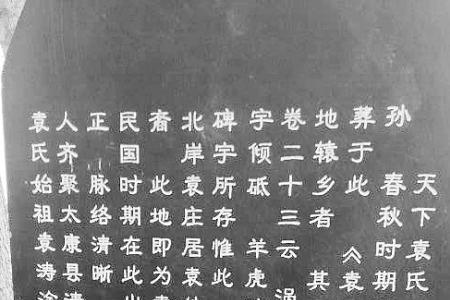 天下袁氏
孙 春秋时期
葬于此 《袁
地辕乡者 其
卷二十三云 涡
字倾砥 羊虎
碑字所存惟此
北岸袁庄居袁
此地即为
民国时期在此
正 脉络清晰
人齐聚太康县清
袁氏始祖袁涛涂